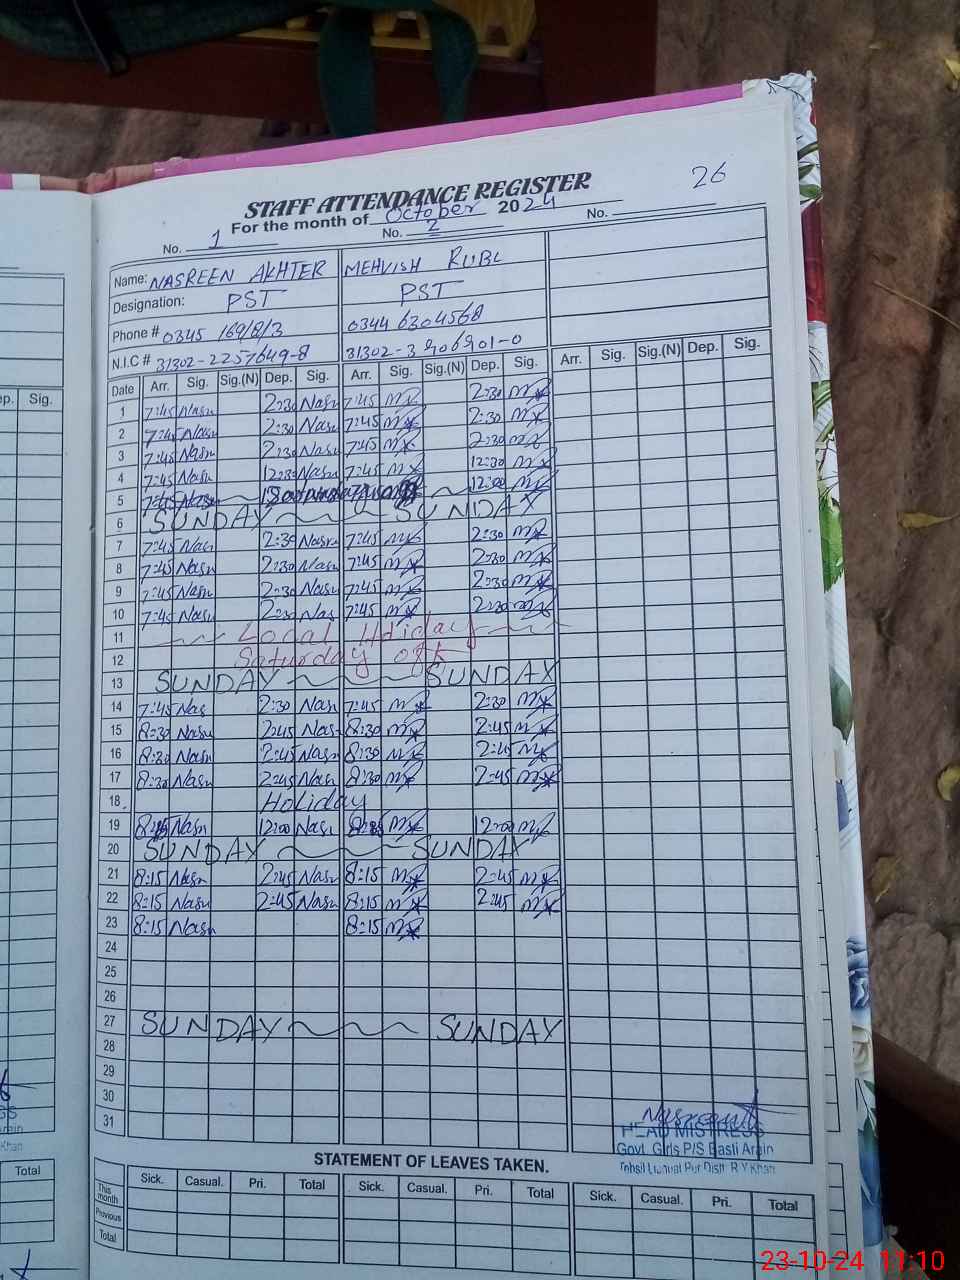 26
STAFF ATTENDANCE REGISTER
For the month of October 2024
No. 1 No. 2 No.
Name: NASREEN AKHTER MEHVISH RUBI
Designation: PST PST
Phone # 0345 169/8/3 0344 6304568
N.I.C # 31302-2257649-8 31302-3906901-0
Date Arr. Sig. Sig.(N) Dep. Sig. Arr. Sig. Sig.(N) Dep. Sig. Arr. Sig. Sig.(N) Dep. Sig.
ep. Sig.
1 7:45 Nasn 2:30 Nasn 7:45 2:30
2 7:45 Nasn 2:30 Nasn 7:45 2:30
3 7:45 Nasn 2:30 Nasn 7:45 2:30
4 7:45 Nasn 12:30 Nasn 7:45 12:30
5 7:45 Nasn 12:00
6 SUNDAY SUNDAY
7 7:45 Nasn 2:30 Nasn 7:45 2:30
8 7:45 Nasn 2:30 Nasn 7:45 2:30
9 7:45 Nasn 2:30 Nasn 7:45 2:30
10 7:45 Nasn 2:30 Nas 7:45 2:30
11 Local Hdiday
12 Saturday off
13 SUNDAY SUNDAY
14 7:45 Nas 2:30 Nasn 7:45 2:30
15 8:30 Nasn 2:45 Nasn 8:30 2:45
16 8:30 Nasn 2:45 Nasn 8:30 2:45
17 8:30 Nasn 2:45 Nasn 8:30 2:45
18 Holiday
19 Nasn 12:00 Nasn 12:00
20 SUNDAY SUNDAY
21 8:15 Nasn 2:45 Nasn 8:15 2:45
22 8:15 Nasn 2:45 Nasn 8:15 2:45
23 8:15 Nasn 8:15
24
25
26
27 SUNDAY SUNDAY
28
29
30
31
HEAD MISTRESS
Govt. Girls P/S Basti Arain
Tehsil Liaquat Pur Distt. R Y Khan
STATEMENT OF LEAVES TAKEN.
Sick. Casual. Pri. Total Sick. Casual. Pri. Total Sick. Casual. Pri. Total
This month
Previous
Total
Total
23-10-24 11:10